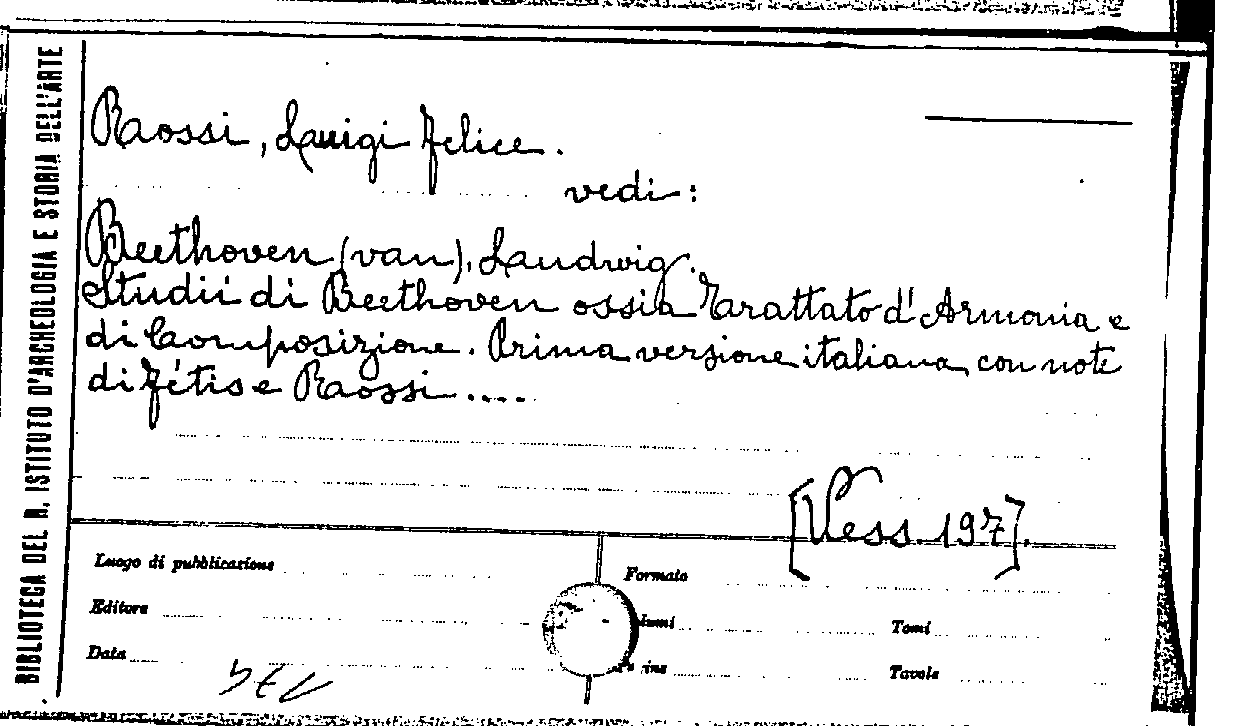 BIBLIOTECA DEL R. ISTITUTO D'ARCHEOLOGIA E STORIA DELL'ARTE
Rossi, Luigi Felice.
vedi:
Beethoven (van), Ludwig.
Studii di Beethoven ossia Trattato d'Armonia e
di Composizione. Prima versione italiana con note
di Fétis e Rossi.....
[Vess. 197].
Luogo di pubblicazione
Formato
Editore
Tomi
Data
Tavole